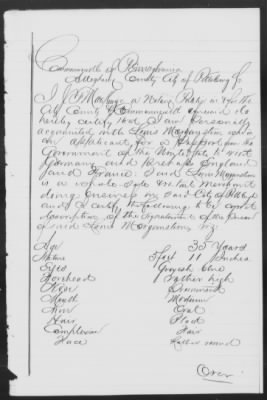 Commonwealth of Pennsylvania
Allegheny County City of Pittsburg
I a Notary Public in & for the
City County & Commonwealth aforesaid do
hereby certify that I am Personally
acquainted with Louis Morganstern who is
an applicant for a Passport from the
Government of the United States to visit
Germany and England
and France. Said Louis Morganstern
is a whole Sale Merchant
doing business in Said City of
and I certify the following to be a
description of the of the Person
of said Louis Morganstern viz:
Age 35 Years
Stature 5 feet 11 Inches
Eyes Greyish blue
Forehead Rather high
Nose
Mouth Medium
Chin Oval
Hair Black
Complexion Fair
Face Rather round
Over